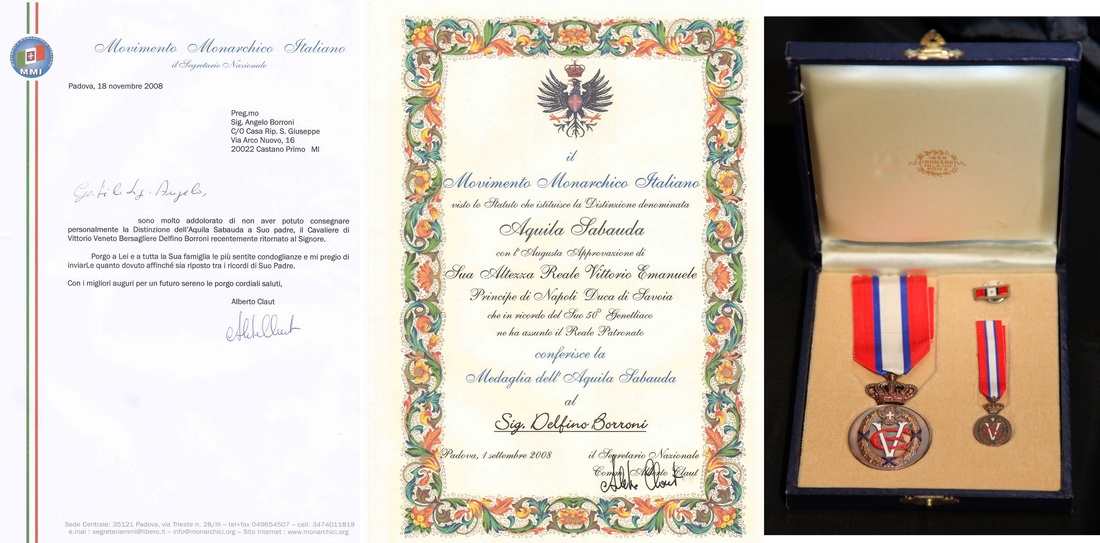 MMI
Movimento Monarchico Italiano
il Segretario Nazionale
Padova, 18 novembre 2008
Preg.mo
Sig. Angelo Borroni
C/O Casa Rip. S. Giuseppe
Via Arco Nuovo, 16
20022 Castano Primo MI
Angelo,
sono molto addolorato di non aver potuto consegnare
personalmente la Distinzione dell'Aquila Sabauda a Suo padre, il Cavaliere di
Vittorio Veneto Bersagliere Delfino Borroni recentemente ritornato al Signore.
Porgo a Lei e a tutta la Sua famiglia le più sentite condoglianze e mi pregio di
inviarLe quanto dovuto affinché sia riposto tra i ricordi di Suo Padre.
Con i migliori auguri per un futuro sereno le porgo cordiali saluti,
Alberto Claut
Sede Centrale: 35121 Padova, via Trieste n. 28/III – tel+fax 049654507 – cell. 3474011818
e.mail : segreteriammi@libero.it – info@monarchici.org – Sito Internet : www.monarchici.org
il
Movimento Monarchico Italiano
visto lo Statuto che istituisce la Distinzione denominata
Aquila Sabauda
con l'Augusta Approvazione di
Sua Altezza Reale Vittorio Emanuele
Principe di Napoli Duca di Savoia
che in ricordo del Suo 50° Genetliaco
ne ha assunto il Reale Patronato
conferisce la
Medaglia dell'Aquila Sabauda
al
Sig. Delfino Borroni
Padova, 1 settembre 2008
il Segretario Nazionale
Comm. Alberto Claut
ROMA